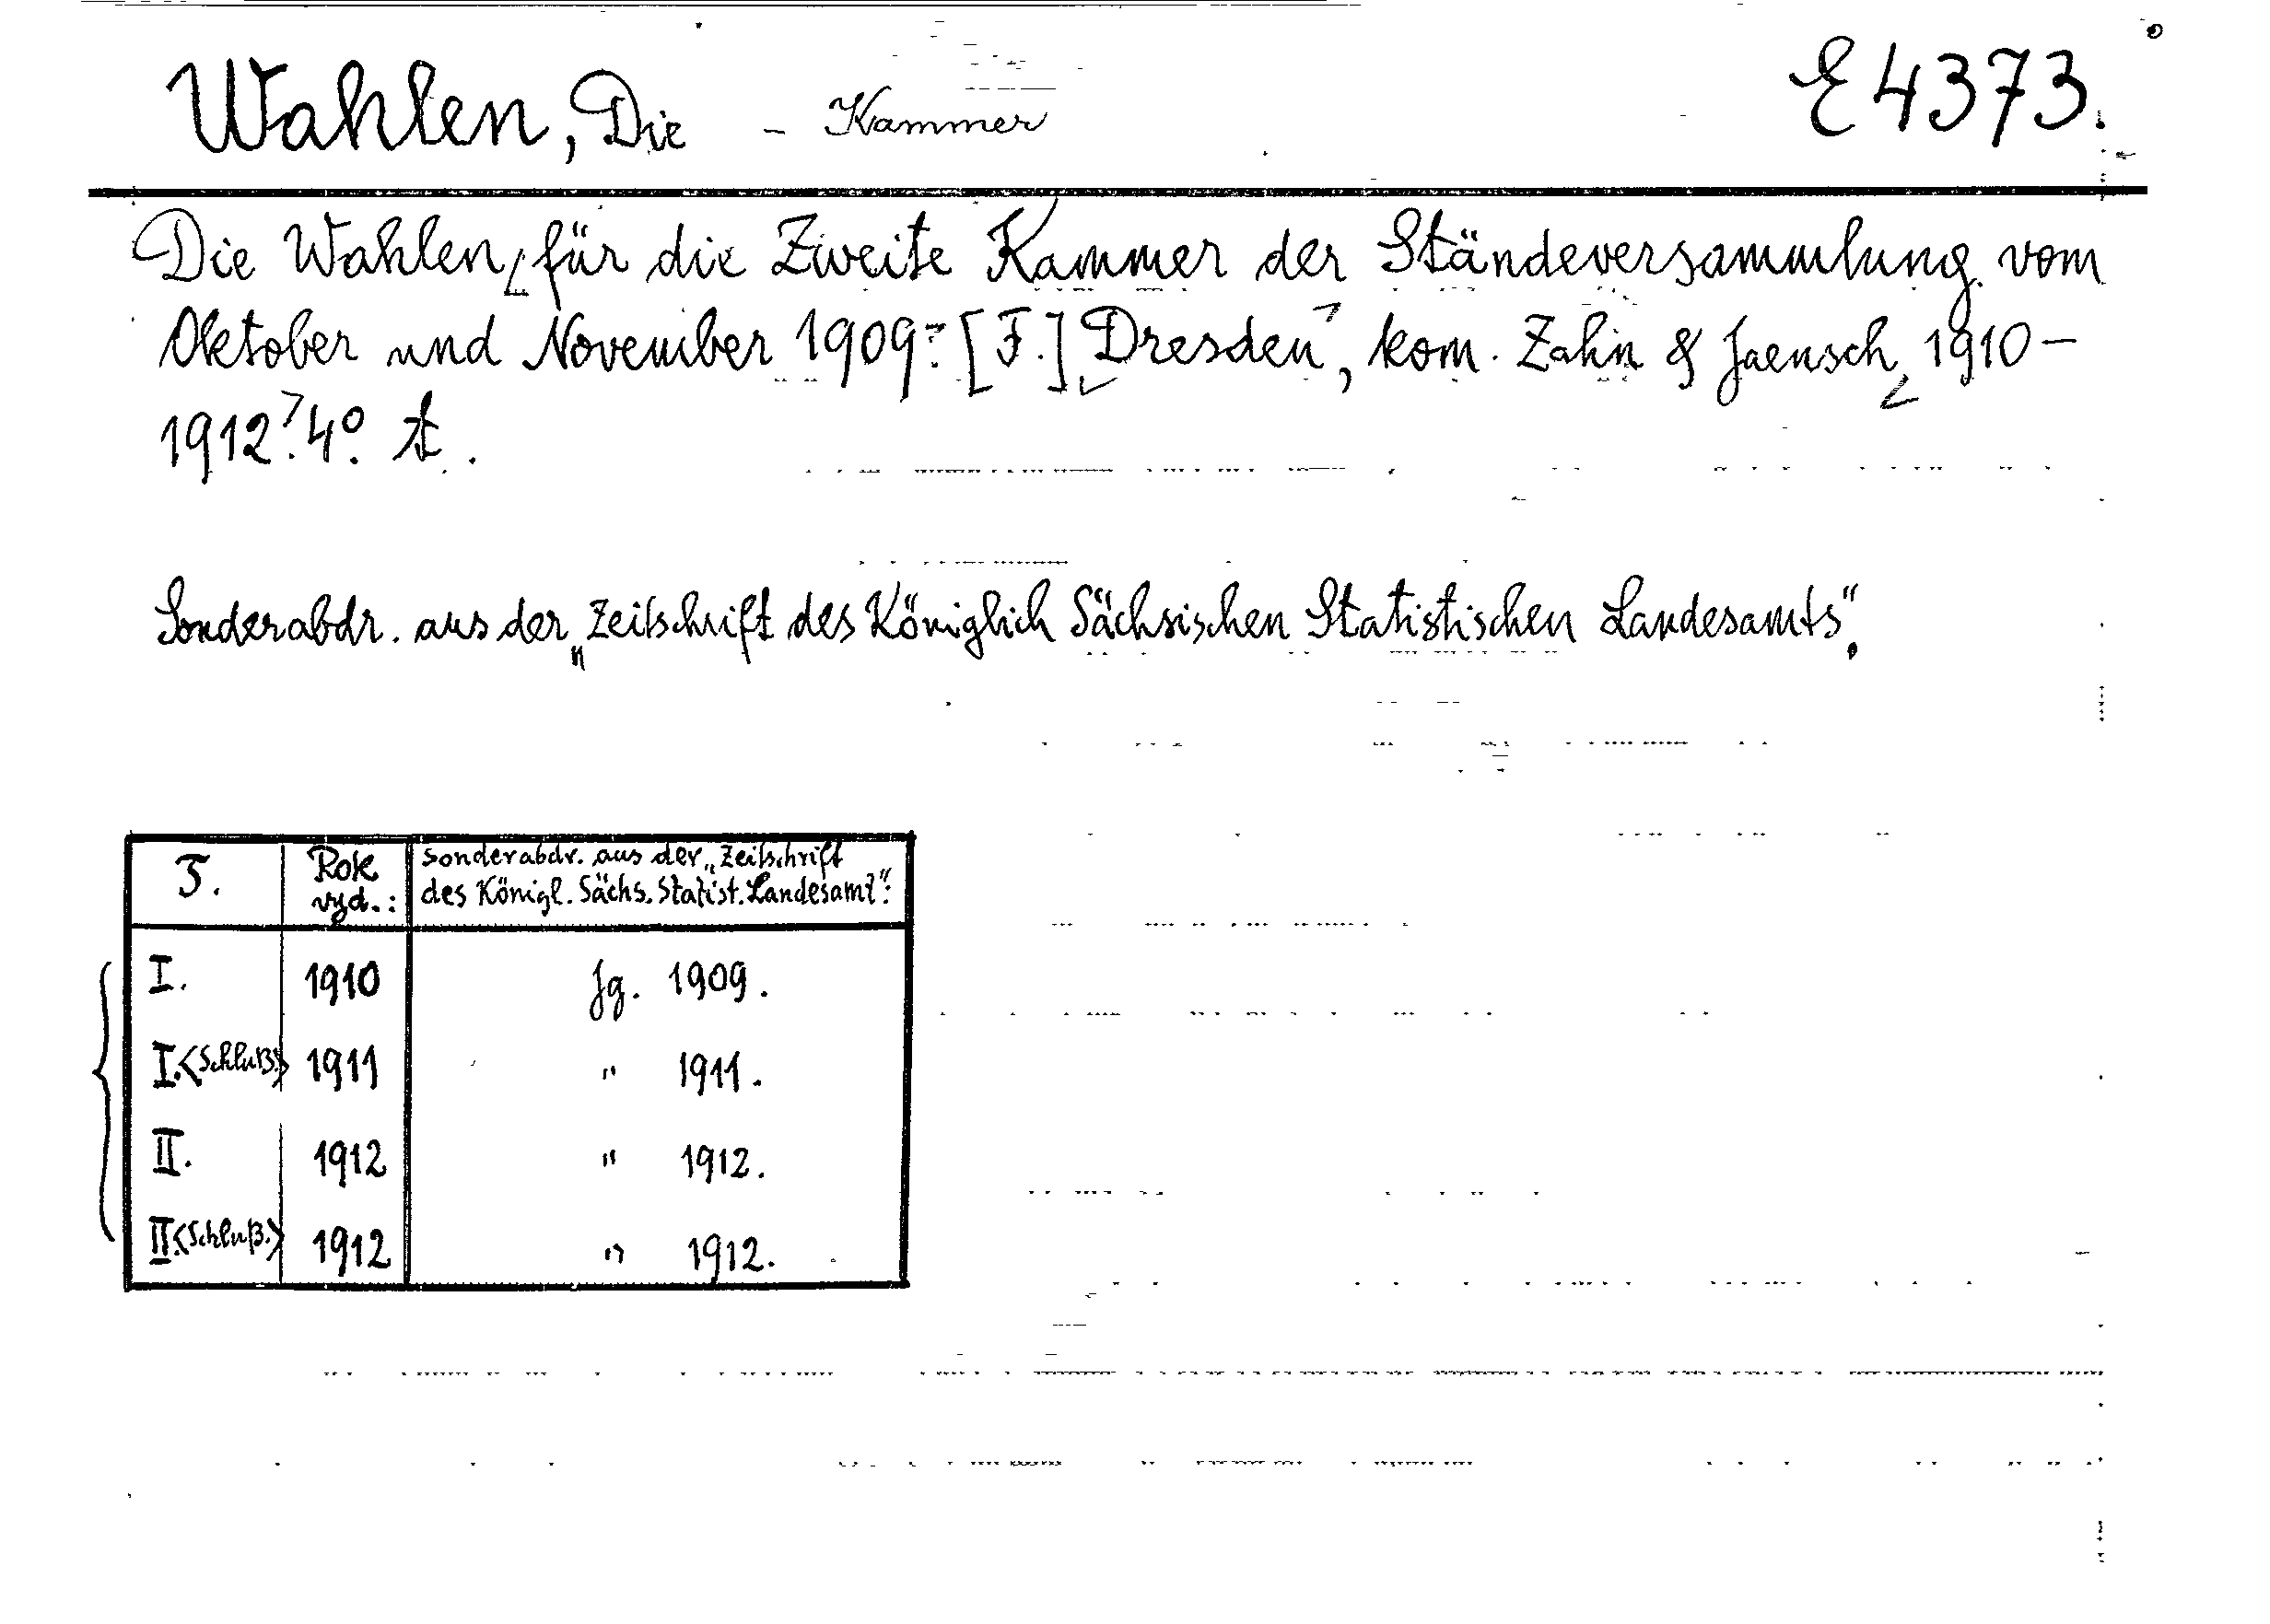 Wahlen, Die - Kammer E 4373.
Die Wahlen für die Zweite Kammer der Ständeversammlung vom
Oktober und November 1909. [F.] Dresden, kom. Zahn & Jaensch 1910–
1912. 4°.
Sonderabdr. aus der „Zeitschrift des Königlich Sächsischen Statistischen Landesamts“.
F. Rok vyd.: Sonderabdr. aus der „Zeitschrift
des Königl. Sächs. Statist. Landesamt“:
I. 1910 Jg. 1909.
I.<Schluß.> 1911 " 1911.
II. 1912 " 1912.
II.<Schluß.> 1912 " 1912.